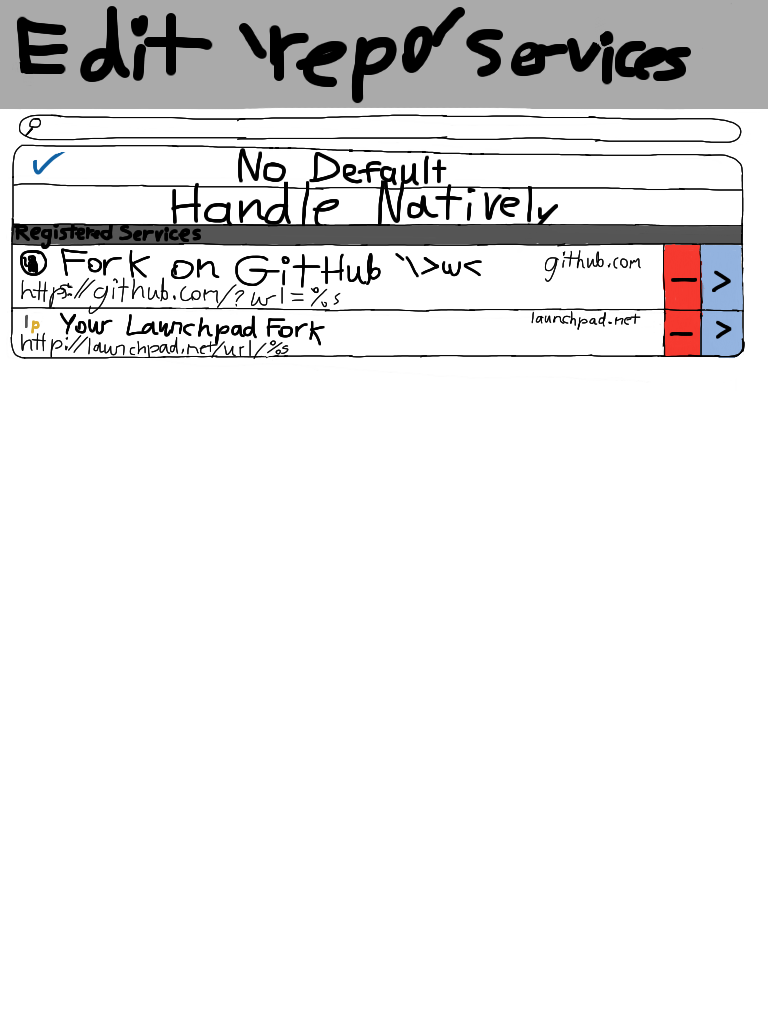 Edit 'repo' Services
No Default
Handle Natively
Registered Services
Fork on GitHub '\>w< github.com
https://github.com/?url=%s
lp Your Launchpad Fork launchpad.net
http://launchpad.net/url/%s